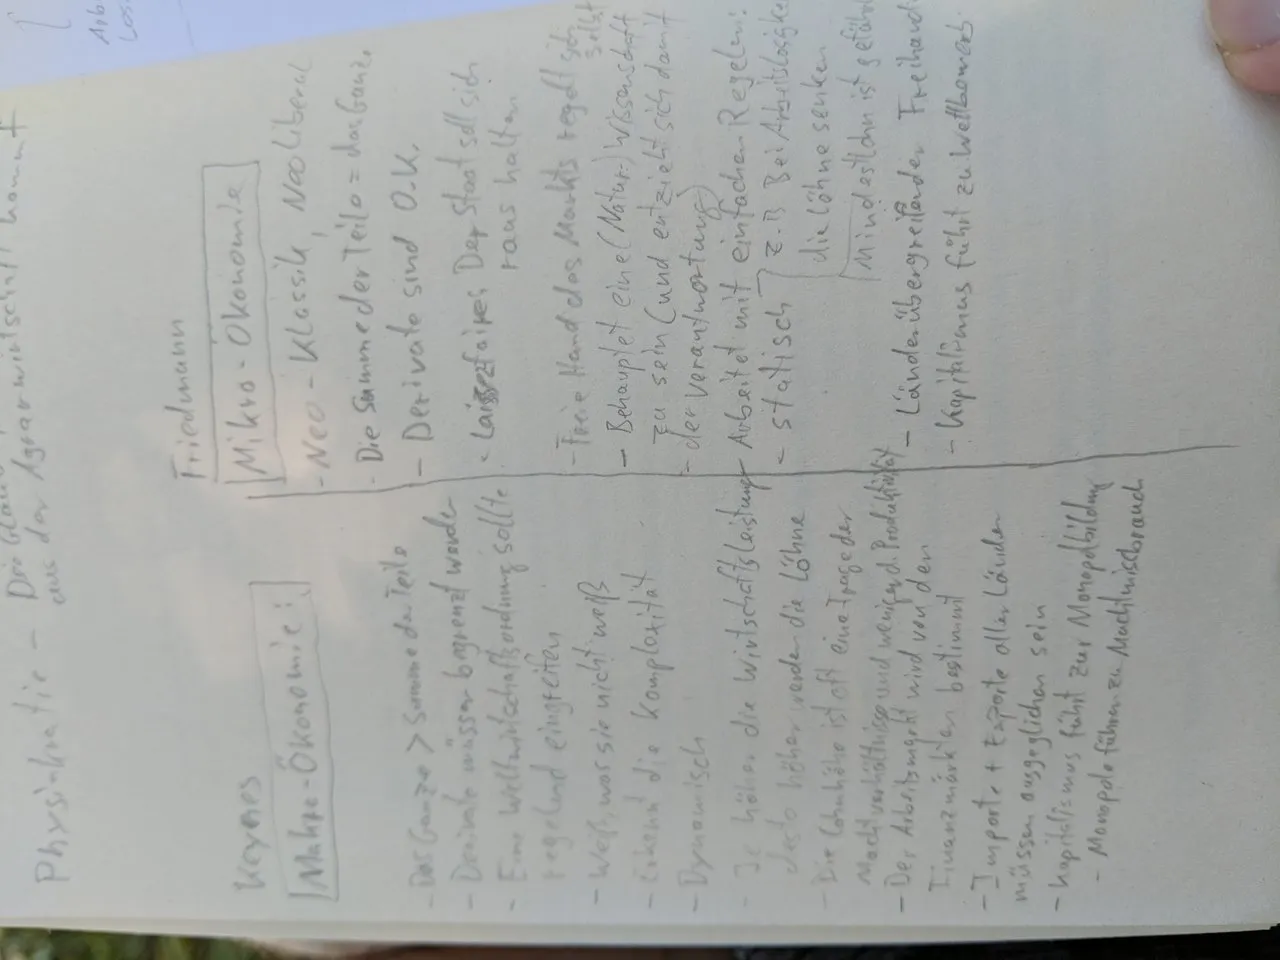 Physiokratie - Der
aus der Agrarwirtschaft kommt
Keynes
Makro-Ökonomie:
- Das Ganze > Summe der Teile
- Derivate müssen begrenzt werden
- Eine Weltwirtschaftsordnung sollte
regelend eingreifen
- Weiß, was sie nicht weiß
- Erkennt die Komplexität
- Dynamisch
- Je höher die Wirtschaftsleistung
desto höher werden die Löhne
- Die Lohnhöhe ist oft eine Frage der
Machtverhältnisse und weniger d. Produktivität
- Der Arbeitsmarkt wird von den
Finanzmärkten bestimmt
- Importe + Exporte aller Länder
müssen ausgeglichen sein
- Kapitalismus führt zur Monopolbildung
- Monopole führen zu Machtmissbrauch
Friedmann
Mikro-Ökonomie
- Neo-Klassik, Neoliberal
- Die Summe der Teile = das Ganze
- Derivate sind O.K.
- Laissezfaires Der Staat soll sich
raus halten
- Freie Hand des Markts regelt sich
selbst
- Behauptet eine (Natur-) Wissenschaft
zu sein (und entzieht sich damit
- der Verantwortung)
- Arbeitet mit einfachen Regeln:
- statisch
z.B Bei Arbeitslosigkeit
die Löhne senken
Mindestlohn ist
- Länderübergreifender Freihandel
- Kapitalismus führt zu Wettbewerb.